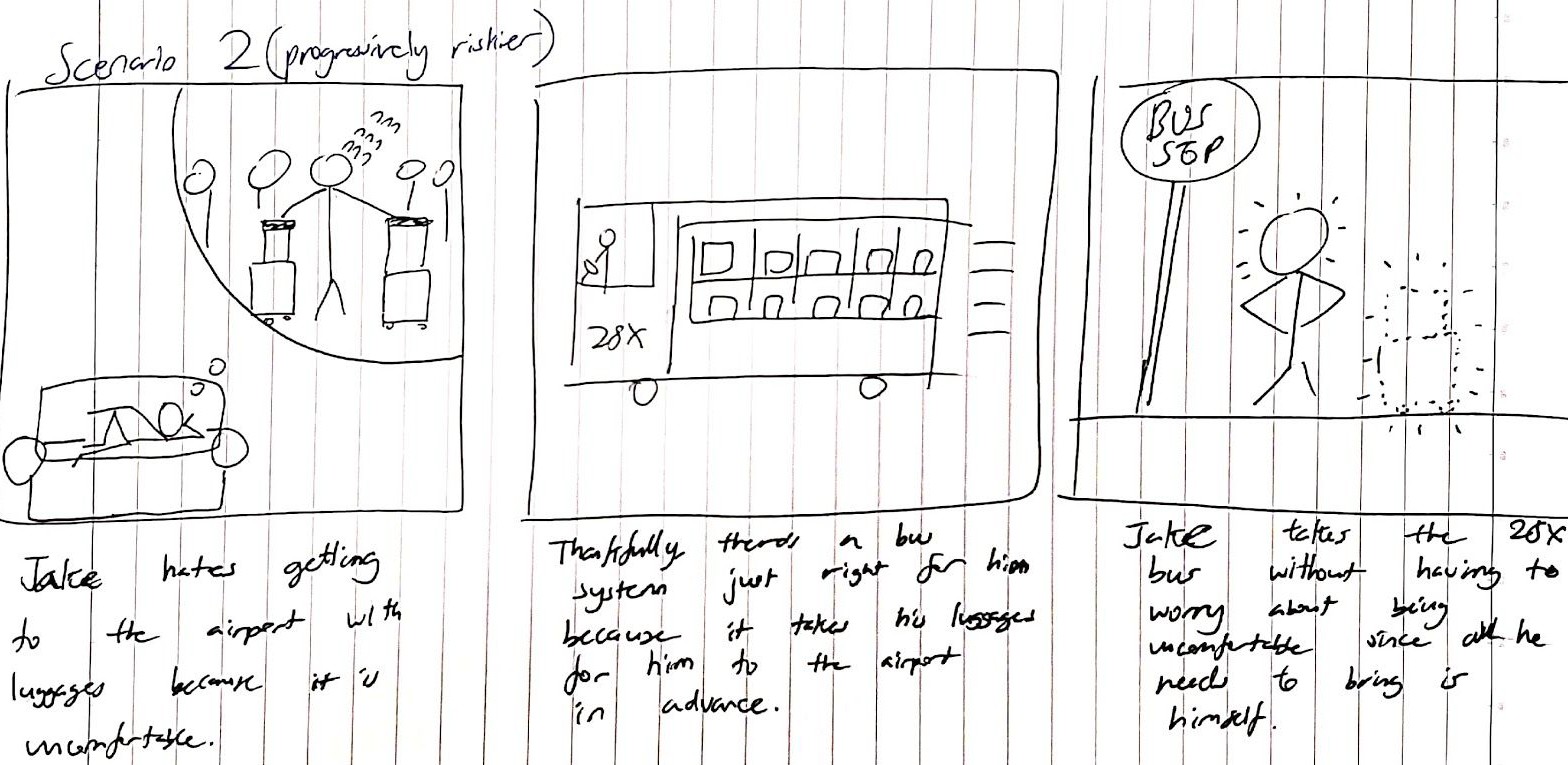 Scenario 2 (progressively riskier)
28X
BUS
STOP
Jake hates getting
to the airport with
luggages because it is
uncomfortable.
Thankfully there's a bus
system just right for him
because it takes his luggages
for him to the airport
in advance.
Jake takes the 28X
bus without having to
worry about being
uncomfortable since all he
needs to bring is
himself.